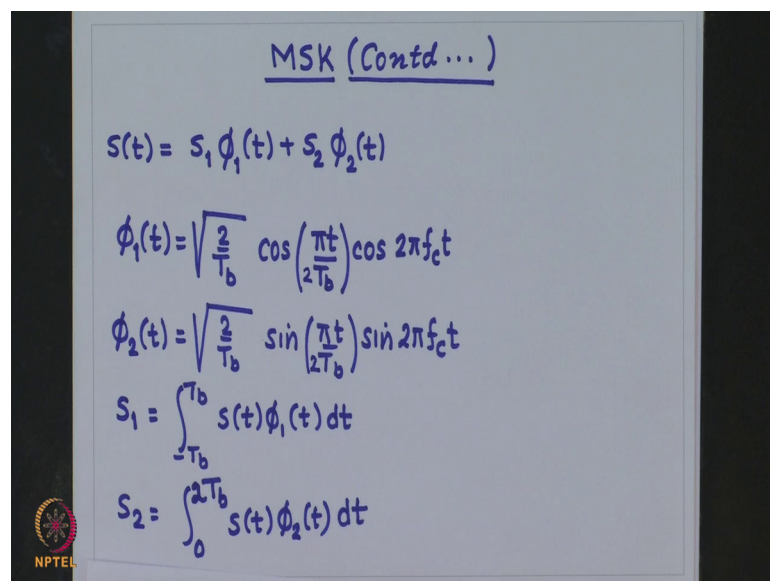 MSK (Contd...)
S(t) = S₁ ϕ₁(t) + S₂ ϕ₂(t)
ϕ₁(t) = √(2/T_b) cos(πt/2T_b) cos 2πf_c t
ϕ₂(t) = √(2/T_b) sin(πt/2T_b) sin 2πf_c t
S₁ = ∫_{-T_b}^{T_b} s(t) ϕ₁(t) dt
S₂ = ∫_0^{2T_b} s(t) ϕ₂(t) dt
NPTEL